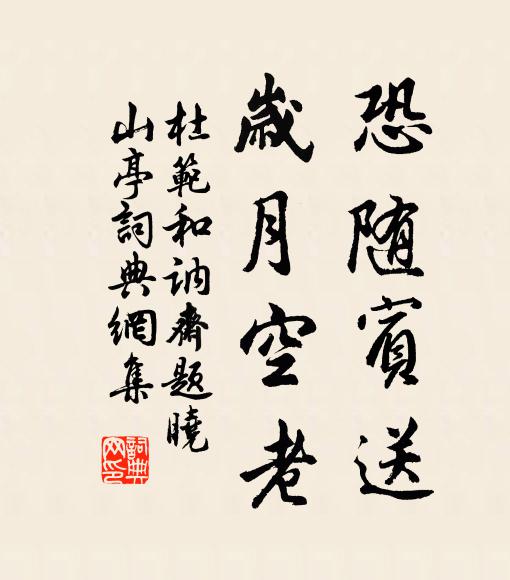 恐随賓送
歲月空老
杜範和訥齋題曉
山亭詞典網集
詞典網印